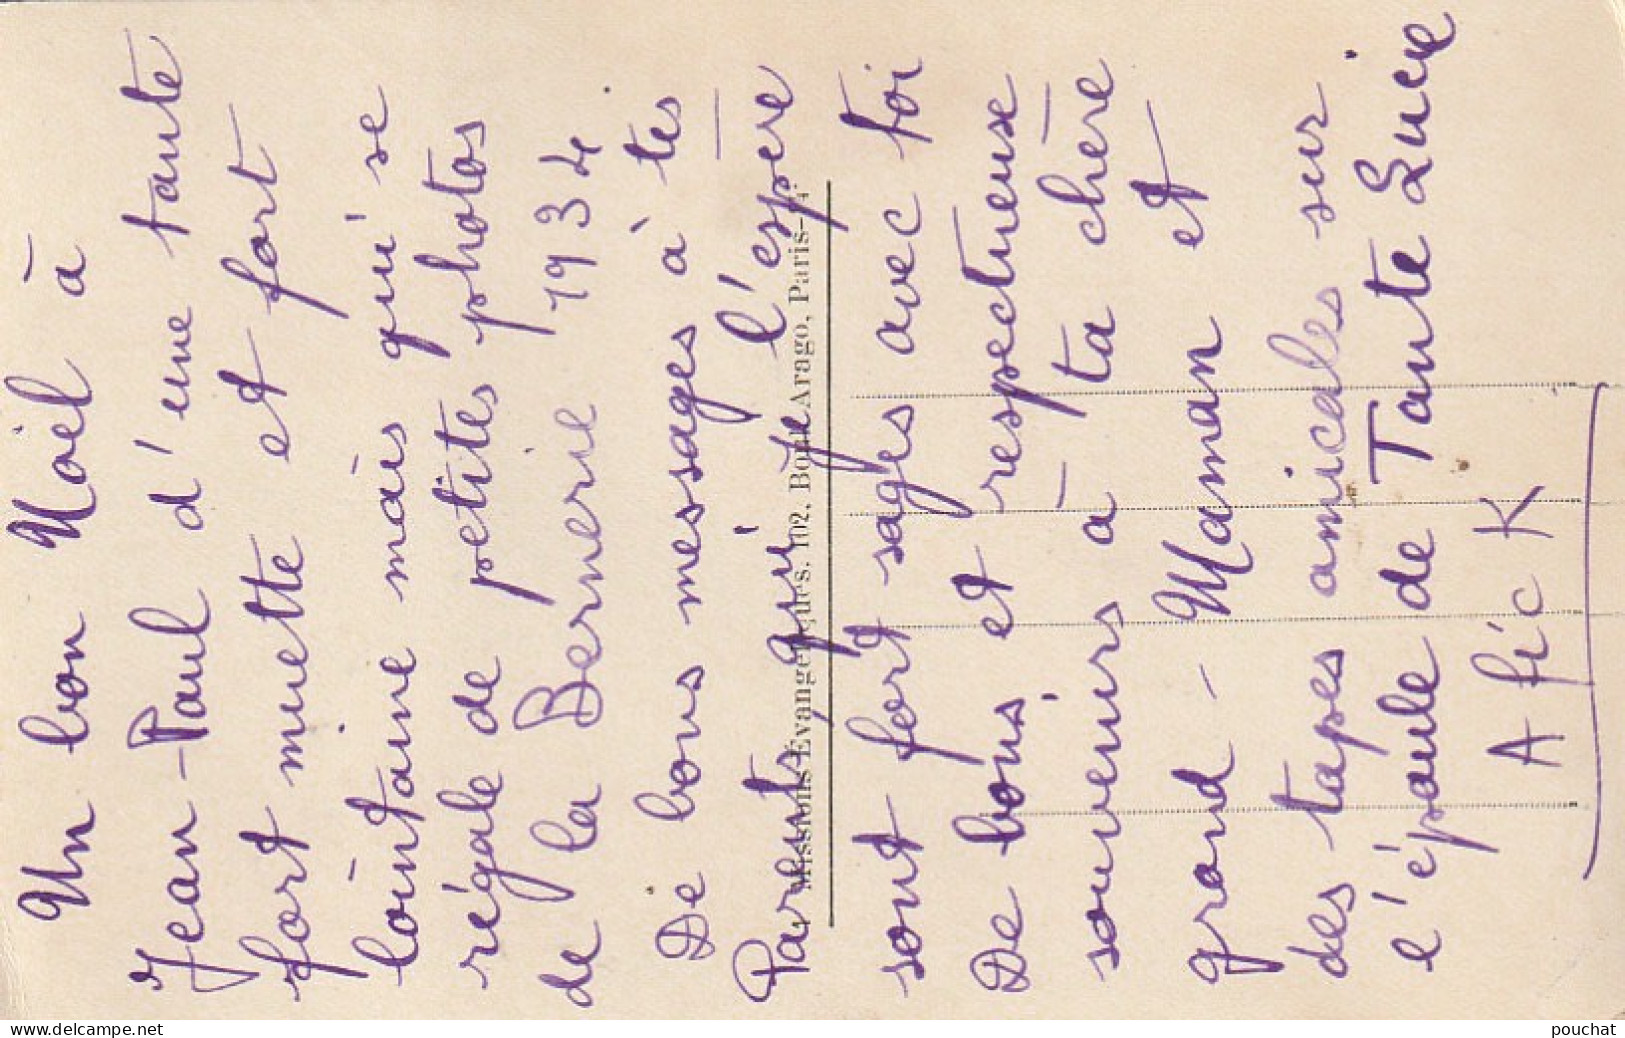 Un bon Noël à
Jean-Paul d'une tante
fort muette et fort
lointaine mais qui se
régale de petites photos
de la Bernerie 1934
De bons messages à tes
Parents qui je l'espère
sont fort sages avec foi
De bons et respectueuse
souvenirs à ta chère
grand-Maman et
des tapes amicales sur
l'épaule de Tante Lucie
A fic K
Missions Évangéliques. 102, Boul. Arago, Paris-
www.delcampe.net
pouchat